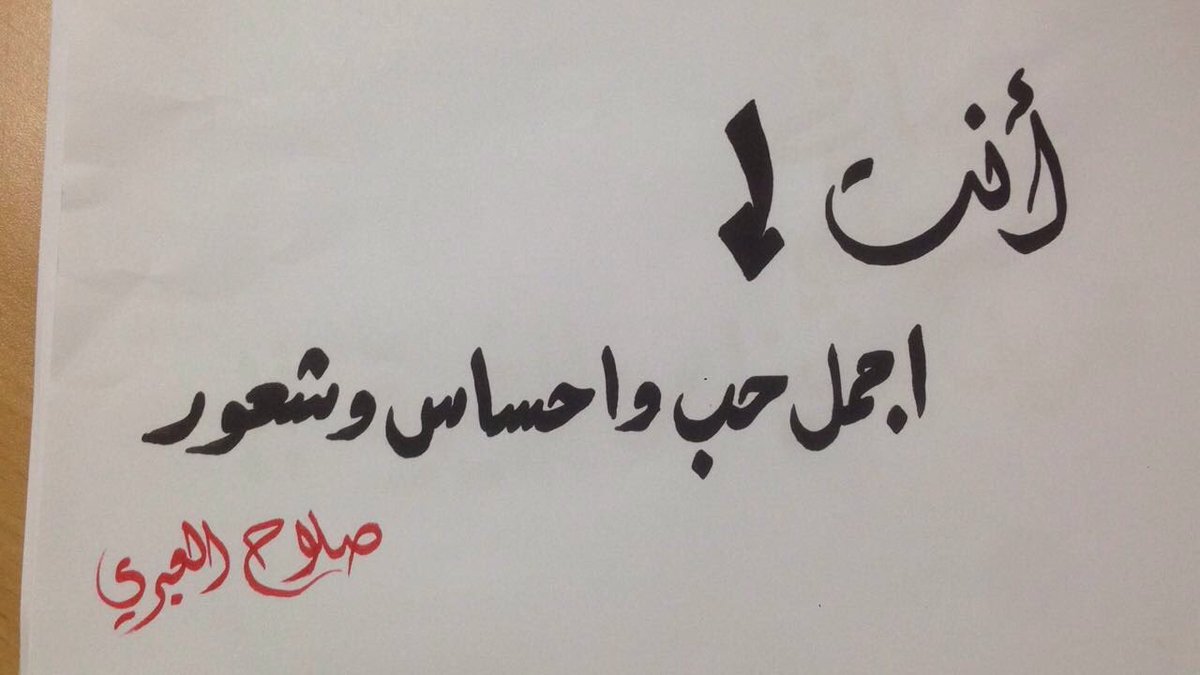 أنت
اجمل حب واحساس وشعور
صلاح العبري